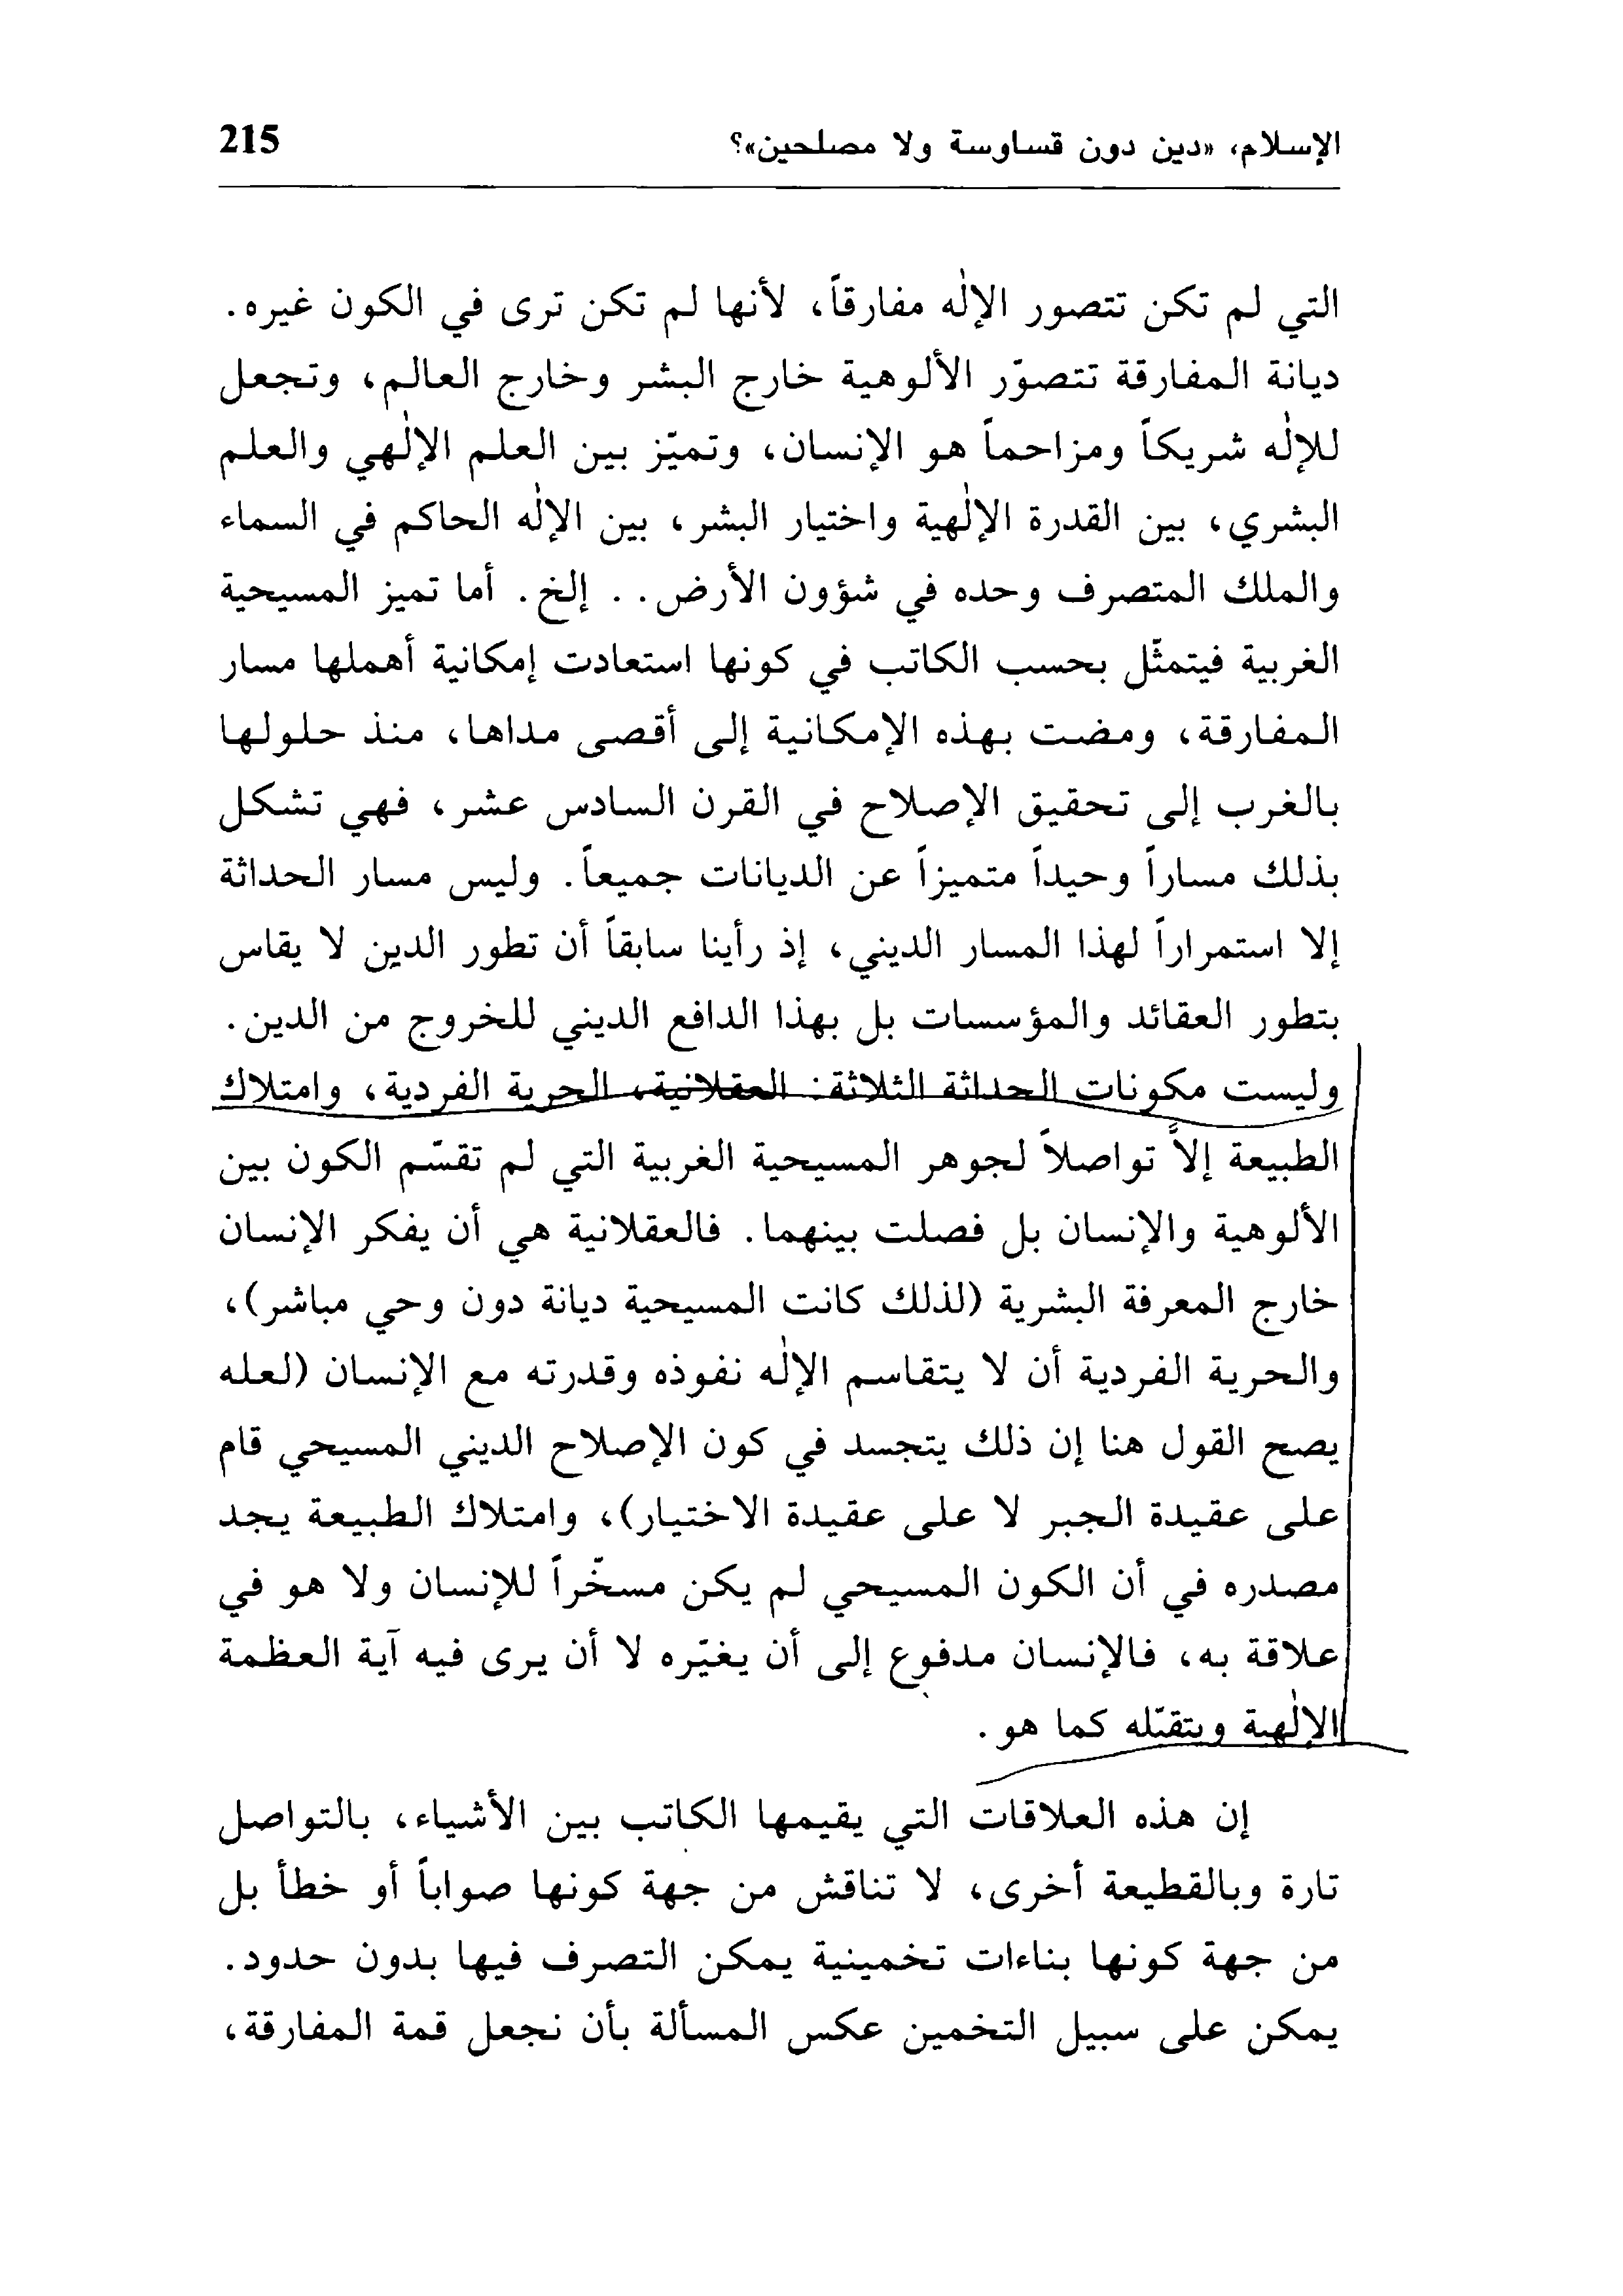 الإسلام، «دين دون قساوسة ولا مصلحين»؟ 215
التي لم تكن تتصور الإلٰه مفارقاً، لأنها لم تكن ترى في الكون غيره.
ديانة المفارقة تتصوّر الألوهية خارج البشر وخارج العالم، وتجعل
للإلٰه شريكاً ومزاحماً هو الإنسان، وتميّز بين العلم الإلٰهي والعلم
البشري، بين القدرة الإلٰهية واختيار البشر، بين الإلٰه الحاكم في السماء
والملك المتصرف وحده في شؤون الأرض.. إلخ. أما تميز المسيحية
الغربية فيتمثّل بحسب الكاتب في كونها استعادت إمكانية أهملها مسار
المفارقة، ومضت بهذه الإمكانية إلى أقصى مداها، منذ حلولها
بالغرب إلى تحقيق الإصلاح في القرن السادس عشر، فهي تشكل
بذلك مساراً وحيداً متميزاً عن الديانات جميعاً. وليس مسار الحداثة
إلا استمراراً لهذا المسار الديني، إذ رأينا سابقاً أن تطور الدين لا يقاس
بتطور العقائد والمؤسسات بل بهذا الدافع الديني للخروج من الدين.
وليست مكونات الحداثة الثلاثة: العقلانية، الحرية الفردية، وامتلاك
الطبيعة إلاّ تواصلاً لجوهر المسيحية الغربية التي لم تقسّم الكون بين
الألوهية والإنسان بل فصلت بينهما. فالعقلانية هي أن يفكر الإنسان
خارج المعرفة البشرية (لذلك كانت المسيحية ديانة دون وحي مباشر)،
والحرية الفردية أن لا يتقاسم الإلٰه نفوذه وقدرته مع الإنسان (لعله
يصح القول هنا إن ذلك يتجسد في كون الإصلاح الديني المسيحي قام
على عقيدة الجبر لا على عقيدة الاختيار)، وامتلاك الطبيعة يجد
مصدره في أن الكون المسيحي لم يكن مسخّراً للإنسان ولا هو في
علاقة به، فالإنسان مدفوع إلى أن يغيّره لا أن يرى فيه آية العظمة
الإلٰهية ويتقبّله كما هو.
إن هذه العلاقات التي يقيمها الكاتب بين الأشياء، بالتواصل
تارة وبالقطيعة أخرى، لا تناقش من جهة كونها صواباً أو خطأ بل
من جهة كونها بناءات تخمينية يمكن التصرف فيها بدون حدود.
يمكن على سبيل التخمين عكس المسألة بأن نجعل قمة المفارقة،